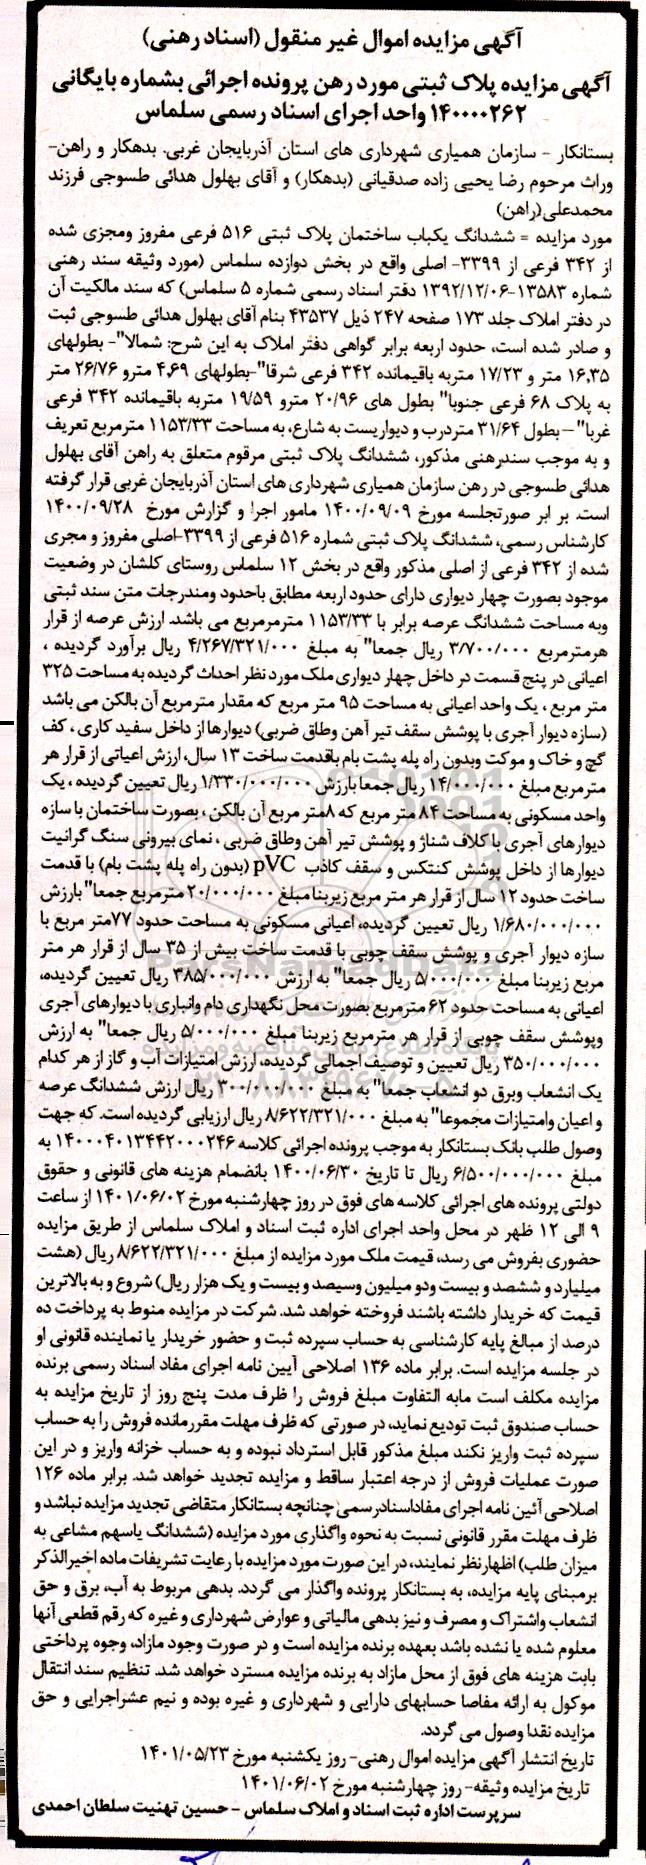 آگهی مزایده اموال غیر منقول (اسناد رهنی)
آگهی مزایده پلاک ثبتی مورد رهن پرونده اجرائی بشماره بایگانی
۱۴۰۰۰۰۲۶۲ واحد اجرای اسناد رسمی سلماس
بستانکار - سازمان همیاری شهرداری های استان آذربایجان غربی. بدهکار و راهن-
وراث مرحوم رضا یحیی زاده صدقیانی (بدهکار) و آقای بهلول هدائی طسوجی فرزند
محمدعلی(راهن)
مورد مزایده = ششدانگ یکباب ساختمان پلاک ثبتی ۵۱۶ فرعی مفروز ومجزی شده
از ۳۴۲ فرعی از ۳۳۹۹- اصلی واقع در بخش دوازده سلماس (مورد وثیقه سند رهنی
شماره ۱۳۵۸۳-۱۳۹۲/۱۲/۰۶ دفتر اسناد رسمی شماره ۵ سلماس) که سند مالکیت آن
در دفتر املاک جلد ۱۷۳ صفحه ۲۴۷ ذیل ۴۳۵۳۷ بنام آقای بهلول هدائی طسوجی ثبت
و صادر شده است، حدود اربعه برابر گواهی دفتر املاک به این شرح: شمالا"- بطولهای
۱۶,۳۵ متر و ۱۷/۲۳ متربه باقیمانده ۳۴۲ فرعی شرقا"-بطولهای ۴,۶۹ مترو ۲۶/۷۶ متر
به پلاک ۶۸ فرعی جنوبا" بطول های ۲۰/۹۶ مترو ۱۹/۵۹ متربه باقیمانده ۳۴۲ فرعی
غربا" -بطول ۳۱/۶۴ متردرب و دیواریست به شارع، به مساحت ۱۱۵۳/۳۳ مترمربع تعریف
و به موجب سندرهنی مذکور، ششدانگ پلاک ثبتی مرقوم متعلق به راهن آقای بهلول
هدائی طسوجی در رهن سازمان همیاری شهرداری های استان آذربایجان غربی قرار گرفته
است. بر ابر صورتجلسه مورخ ۱۴۰۰/۰۹/۰۹ مامور اجرا و گزارش مورخ ۱۴۰۰/۰۹/۲۸
کارشناس رسمی، ششدانگ پلاک ثبتی شماره ۵۱۶ فرعی از ۳۳۹۹-اصلی مفروز و مجری
شده از ۳۴۲ فرعی از اصلی مذکور واقع در بخش ۱۲ سلماس روستای کلشان در وضعیت
موجود بصورت چهار دیواری دارای حدود اربعه مطابق باحدود ومندرجات متن سند ثبتی
وبه مساحت ششدانگ عرصه برابر با ۱۱۵۳/۳۳ مترمرمربع می باشد. ارزش عرصه از قرار
هرمترمربع ۳/۷۰۰/۰۰۰ ریال جمعا" به مبلغ ۴/۲۶۷/۳۲۱/۰۰۰ ریال برآورد گردیده ،
اعیانی در پنج قسمت در داخل چهار دیواری ملک مورد نظر احداث گردیده به مساحت ۳۲۵
متر مربع ، یک واحد اعیانی به مساحت ۹۵ متر مربع که مقدار مترمربع آن بالکن می باشد
(سازه دیوار آجری با پوشش سقف تیر آهن وطاق ضربی) دیوارها از داخل سفید کاری ، کف
گچ و خاک و موکت وبدون راه پله پشت بام باقدمت ساخت ۱۳ سال، ارزش اعیاتی از قرار هر
مترمربع مبلغ ۱۴/۰۰۰/۰۰۰ ریال جمعا بارزش ۱/۳۳۰/۰۰۰/۰۰۰ ریال تعیین گردیده ، یک
واحد مسکونی به مساحت ۸۴ متر مربع که ۸متر مربع آن بالکن ، بصورت ساختمان با سازه
دیوارهای آجری با کلاف شناژ و پوشش تیر آهن وطاق ضربی ، نمای بیرونی سنگ گرانیت
دیوارها از داخل پوشش کنتکس و سقف کاذب pVC (بدون راه پله پشت بام) با قدمت
ساخت حدود ۱۲ سال از قرار هر متر مربع زیربنا مبلغ ۲۰/۰۰۰/۰۰۰ مترمربع جمعا" بارزش
۱/۶۸۰/۰۰۰/۰۰۰ ریال تعیین گردیده، اعیانی مسکونی به مساحت حدود ۷۷متر مربع با
سازه دیوار آجری و پوشش سقف چوبی با قدمت ساخت بیش از ۳۵ سال از قرار هر متر
مربع زیربنا مبلغ ۵/۰۰۰/۰۰۰ ریال جمعا" به ارزش ۳۸۵/۰۰۰/۰۰۰ ریال تعیین گردیده،
اعیانی به مساحت حدود ۶۲ مترمربع بصورت محل نگهداری دام وانباری با دیوارهای آجری
وپوشش سقف چوبی از قرار هر مترمربع زیربنا مبلغ ۵/۰۰۰/۰۰۰ ریال جمعا" به ارزش
۳۵۰/۰۰۰/۰۰۰ ریال تعیین و توصیف اجمالی گردیده، ارزش امتیازات آب و گاز از هر کدام
یک انشعاب وبرق دو انشعاب جمعا" به مبلغ ۳۰۰/۰۰۰/۰۰۰ ریال ارزش ششدانگ عرصه
و اعیان وامتیازات مجموعا" به مبلغ ۸/۶۲۲/۳۲۱/۰۰۰ ریال ارزیابی گردیده است. که جهت
وصول طلب بانک بستانکار به موجب پرونده اجرائی کلاسه ۱۴۰۰۰۴۰۱۳۴۴۲۰۰۰۲۴۶ به
مبلغ ۶/۵۰۰/۰۰۰/۰۰۰ ریال تا تاریخ ۱۴۰۰/۰۶/۳۰ بانضمام هزینه های قانونی و حقوق
دولتی پرونده های اجرائی کلاسه های فوق در روز چهارشنبه مورخ ۱۴۰۱/۰۶/۰۲ از ساعت
۹ الی ۱۲ ظهر در محل واحد اجرای اداره ثبت اسناد و املاک سلماس از طریق مزایده
حضوری بفروش می رسد، قیمت ملک مورد مزایده از مبلغ ۸/۶۲۲/۳۲۱/۰۰۰ ریال (هشت
میلیارد و ششصد و بیست ودو میلیون وسیصد و بیست و یک هزار ریال) شروع و به بالاترین
قیمت که خریدار داشته باشند فروخته خواهد شد. شرکت در مزایده منوط به پرداخت ده
درصد از مبالغ پایه کارشناسی به حساب سپرده ثبت و حضور خریدار یا نماینده قانونی او
در جلسه مزایده است. برابر ماده ۱۳۶ اصلاحی آیین نامه اجرای مفاد اسناد رسمی برنده
مزایده مکلف است مابه التفاوت مبلغ فروش را ظرف مدت پنج روز از تاریخ مزایده به
حساب صندوق ثبت تودیع نماید، در صورتی که ظرف مهلت مقررمانده فروش را به حساب
سپرده ثبت واریز نکند مبلغ مذکور قابل استرداد نبوده و به حساب خزانه واریز و در این
صورت عملیات فروش از درجه اعتبار ساقط و مزایده تجدید خواهد شد. برابر ماده ۱۲۶
اصلاحی آئین نامه اجرای مفاداسنادرسمی چنانچه بستانکار متقاضی تجدید مزایده نباشد و
ظرف مهلت مقرر قانونی نسبت به نحوه واگذاری مورد مزایده (ششدانگ یاسهم مشاعی به
میزان طلب) اظهارنظر نمایند، در این صورت مورد مزایده با رعایت تشریفات ماده اخیرالذکر
برمبنای پایه مزایده، به بستانکار پرونده واگذار می گردد. بدهی مربوط به آب، برق و حق
انشعاب واشتراک و مصرف و نیز بدهی مالیاتی و عوارض شهرداری و غیره که رقم قطعی آنها
معلوم شده یا نشده باشد بعهده برنده مزایده است و در صورت وجود مازاد، وجوه پرداختی
بابت هزینه های فوق از محل مازاد به برنده مزایده مسترد خواهد شد. تنظیم سند انتقال
موکول به ارائه مفاصا حسابهای دارایی و شهرداری و غیره بوده و نیم عشراجرایی و حق
مزایده نقدا وصول می گردد.
تاریخ انتشار آگهی مزایده اموال رهنی- روز یکشنبه مورخ ۱۴۰۱/۰۵/۲۳
تاریخ مزایده وثیقه- روز چهارشنبه مورخ ۱۴۰۱/۰۶/۰۲
سرپرست اداره ثبت اسناد و املاک سلماس - حسین تهنیت سلطان احمدی